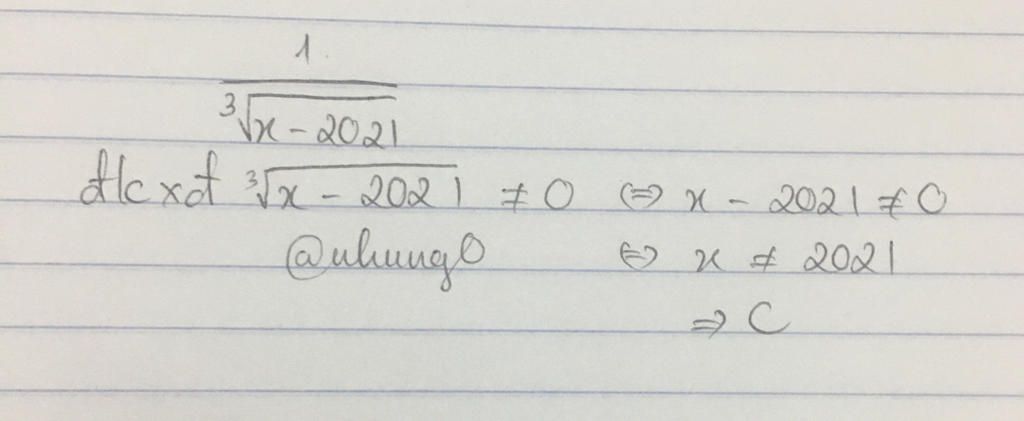 1
∛(x - 2021)
đkxđ ∛(x - 2021) ≠ 0 ⇔ x - 2021 ≠ 0
@uhung0 ⇔ x ≠ 2021
⇒ C